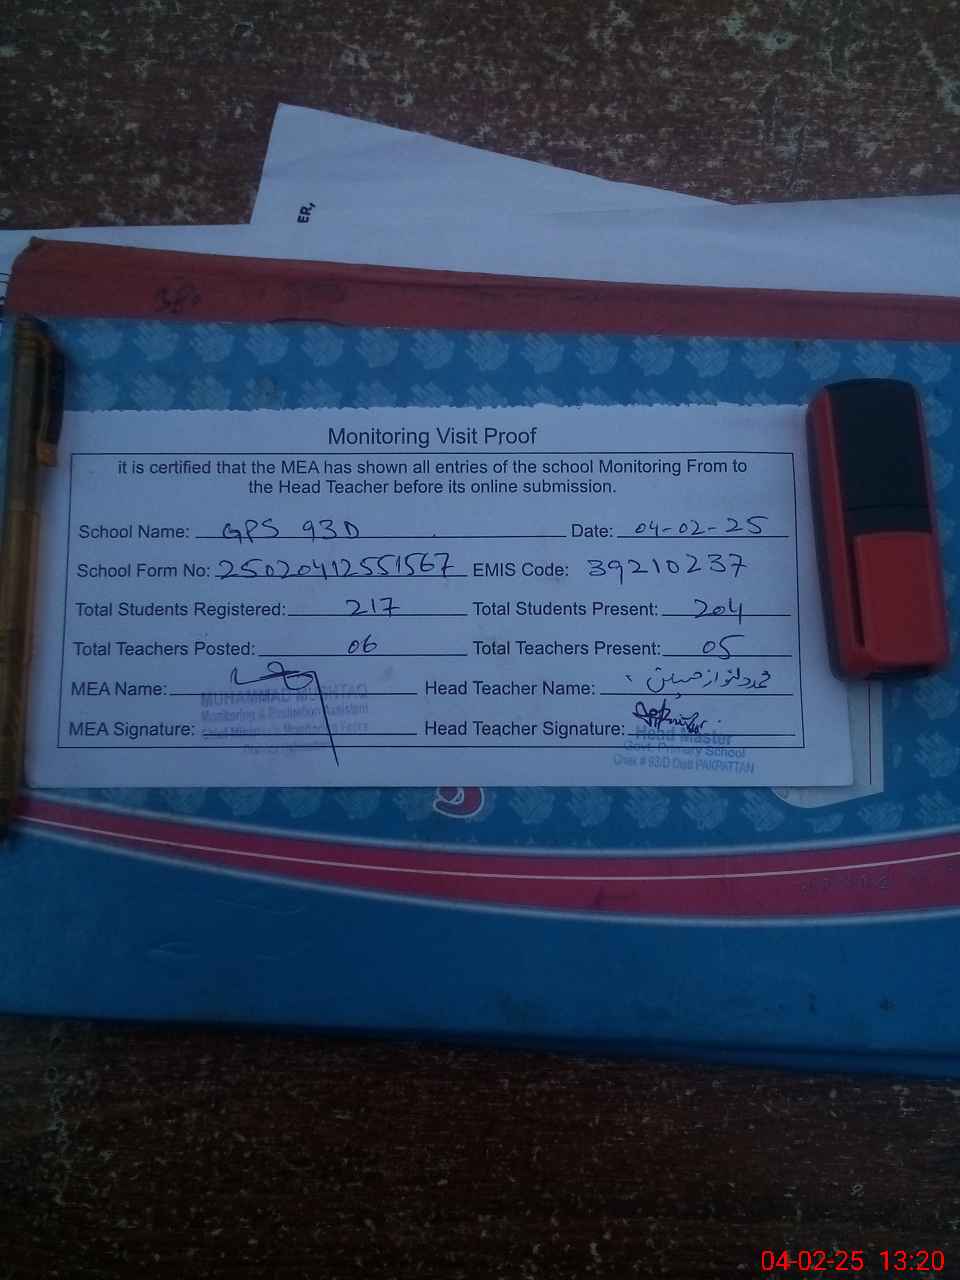 ER,
Monitoring Visit Proof
it is certified that the MEA has shown all entries of the school Monitoring From to
the Head Teacher before its online submission.
School Name: GPS 93D Date: 04-02-25
School Form No: 25020412551567 EMIS Code: 39210237
Total Students Registered: 217 Total Students Present: 204
Total Teachers Posted: 06 Total Teachers Present: 05
MEA Name: Head Teacher Name: محمد دلنواز حسین
MUHAMMAD MUSHTAQ
Monitoring & Evaluation Assistant
MEA Signature: Head Teacher Signature:
Chief Minister's Monitoring Force
Head Master
Govt. Primary School
Chak # 93/D Distt PAKPATTAN
04-02-25 13:20